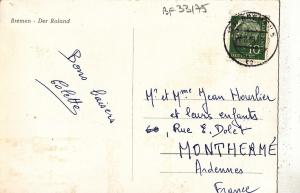 Bremen - Der Roland
BF 33/75
10
Bons baisers
Colette
Mr et Mme Jean Hourlier
et leurs enfants
60, Rue E. Dolet
MONTHERMÉ
Ardennes
France